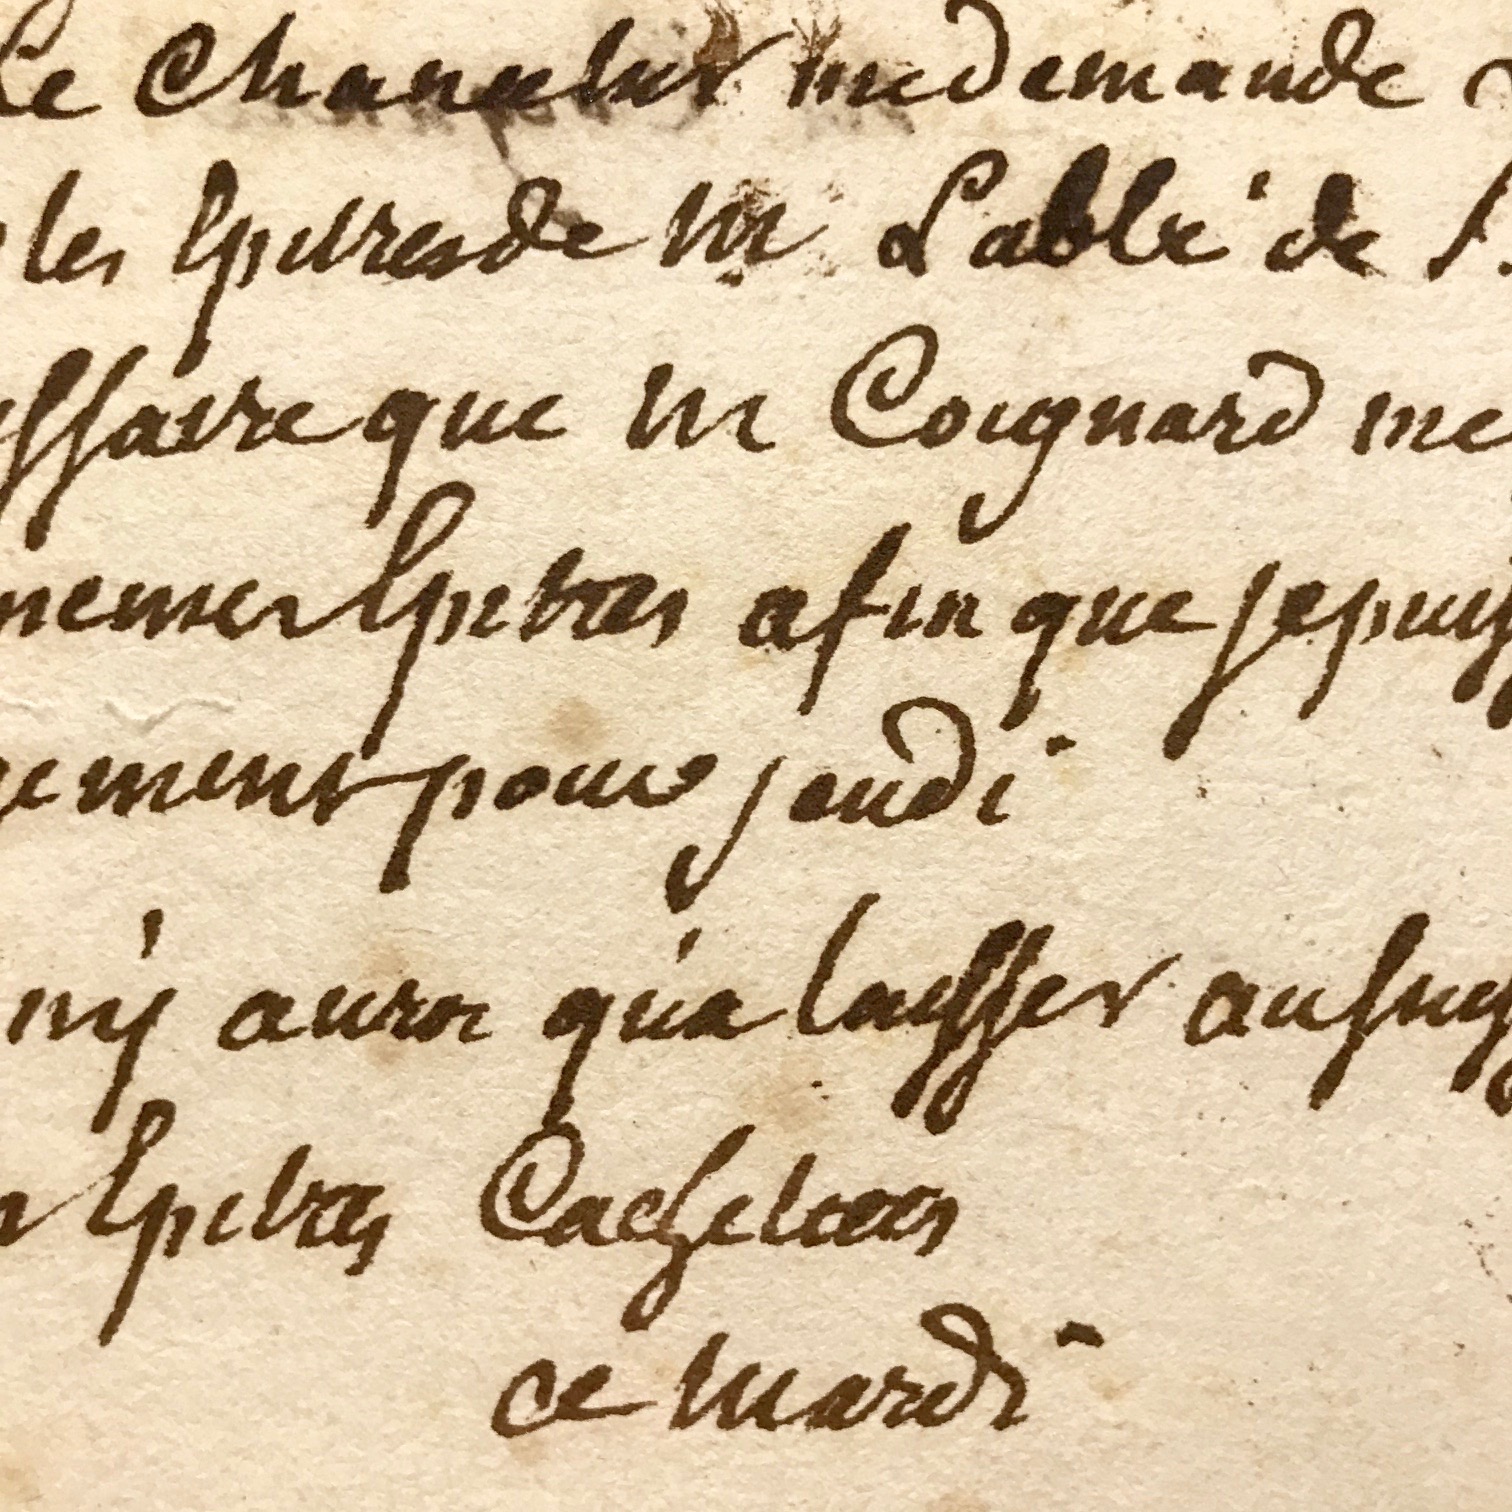 Le Chancelier me demande
les Epitres de M Labbé de S.
affaire que M Coignard me
memes Epitres afin que je puis
gement pour jeudi
ny aura qua laisser au suis
Epitres Cachetées
ce Mardi